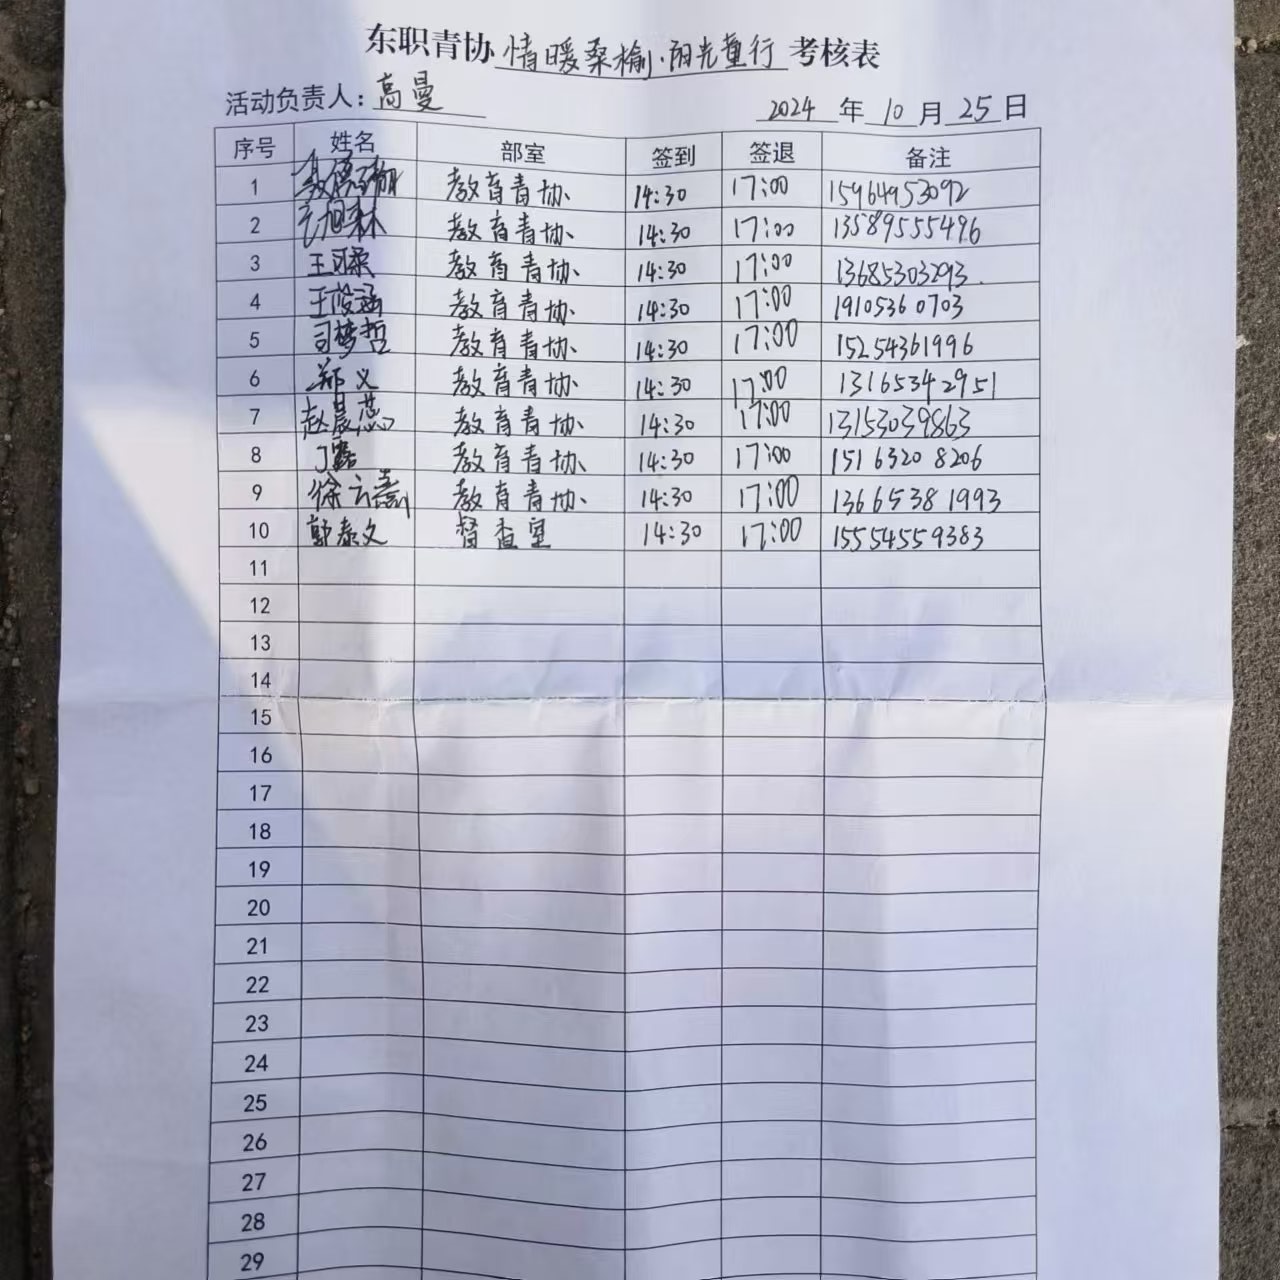 东职青协 情暖桑榆·阳光童行 考核表
活动负责人：高曼 2024 年 10 月 25 日
序号 姓名 部室 签到 签退 备注
1 教育青协 14:30 17:00 15964953092
2 教育青协 14:30 17:00 13589555496
3 王可柔 教育青协 14:30 17:00 13685303293
4 王俊涵 教育青协 14:30 17:00 19105360703
5 司梦哲 教育青协 14:30 17:00 15254361996
6 郑义 教育青协 14:30 17:00 13165342951
7 赵晨蕊 教育青协 14:30 17:00 13153039863
8 教育青协 14:30 17:00 15163208206
9 教育青协 14:30 17:00 13665381993
10 郭泰文 督查室 14:30 17:00 15554559383
11
12
13
14
15
16
17
18
19
20
21
22
23
24
25
26
27
28
29